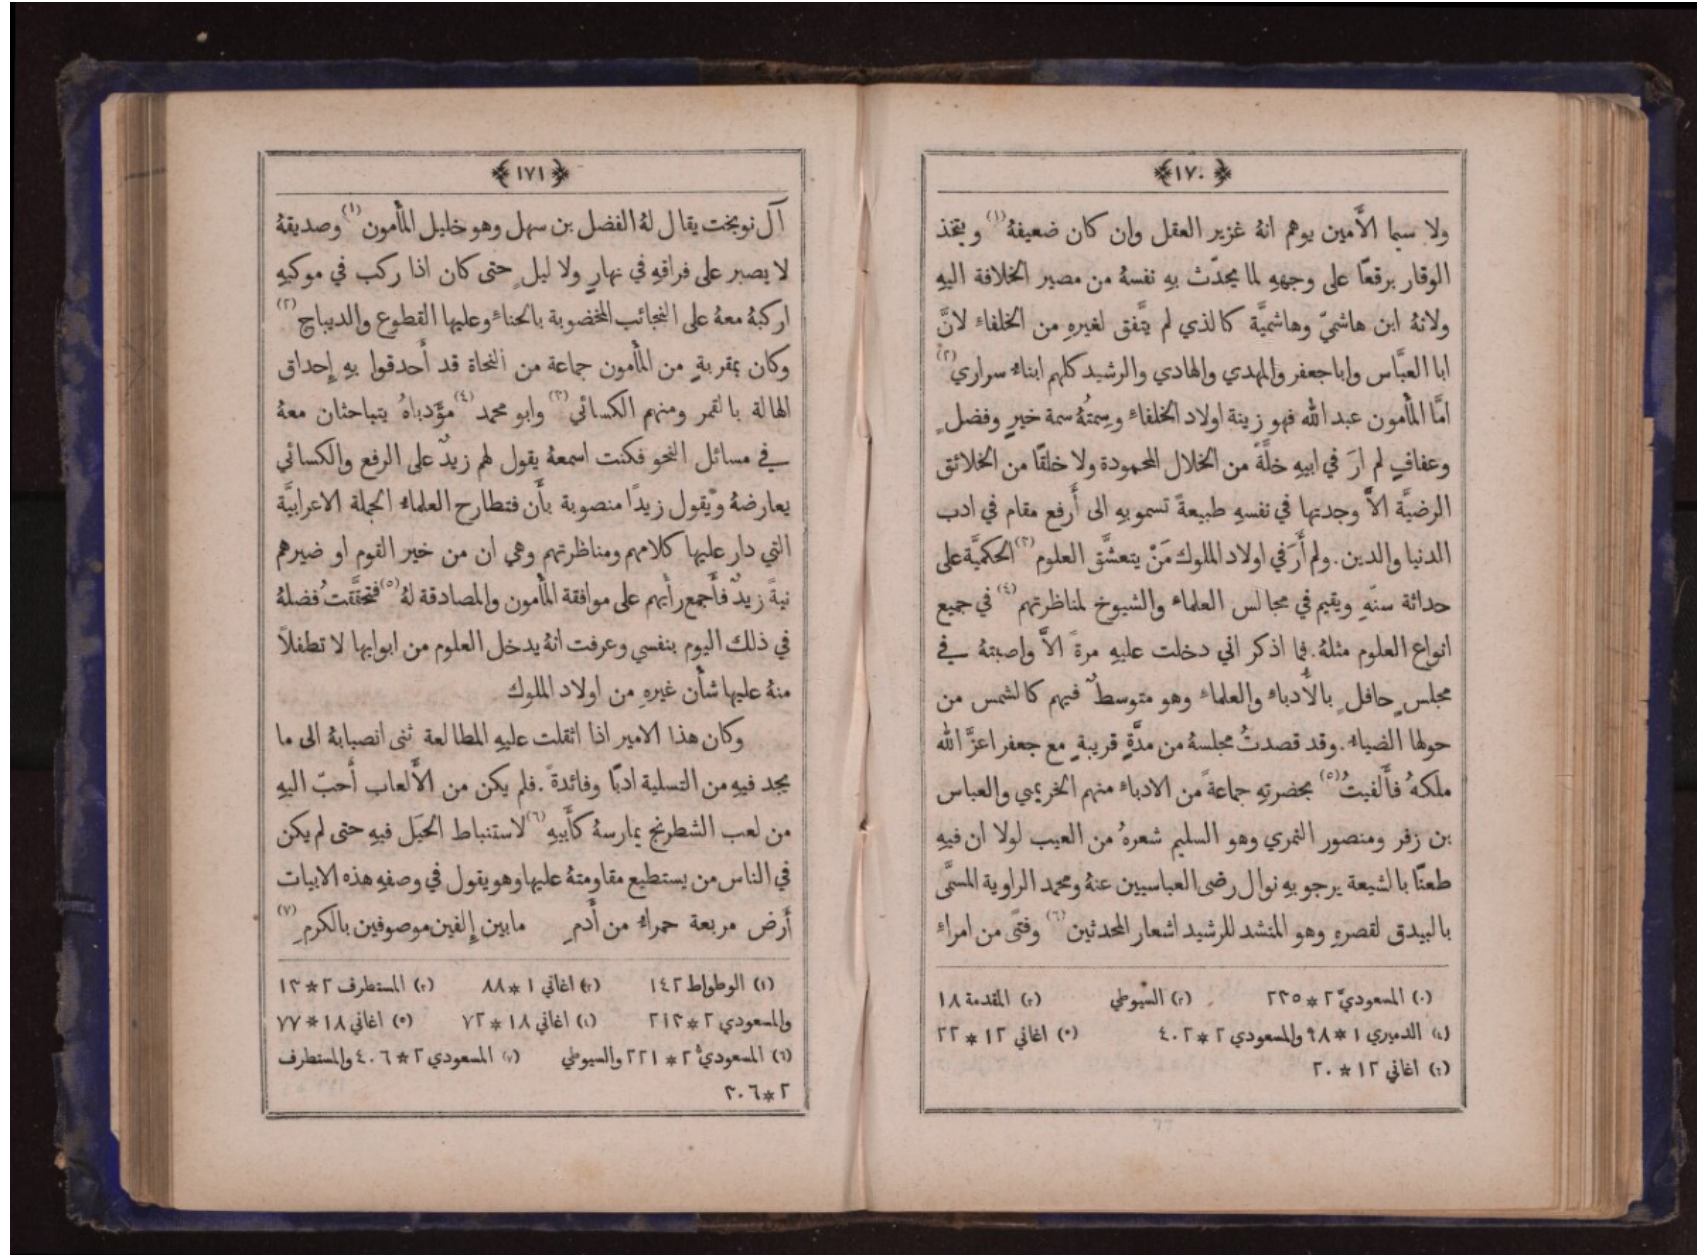 ﴿١٧٠﴾
ولا سيما الأَمين يوهم انهُ غزير العقل وان كان ضعيفهُ (١) ويتخذ
الوقار برقعًا على وجههِ لما يحدّث بهِ نفسهُ من مصير الخلافة اليهِ
ولانهُ ابن هاشميّ وهاشميَّة كالذي لم يتَّفق لغيرهِ من الخلفاءِ لانَّ
ابا العبَّاس وابا جعفر والمهدي والهادي والرشيد كلهم ابناءُ سراري (٢)
امَّا المأْمون عبد الله فهو زينة اولاد الخلفاءِ وسِمتُهُ سمة خيرٍ وفضلٍ
وعفافٍ لم ارَ في ابيهِ خلَّةً من الخلال المحمودة ولا خلقًا من الخلائق
الرضيَّة الاَّ وجدتها في نفسهِ طبيعةً تسمو بهِ الى أَرفع مقام في ادب
الدنيا والدين. ولم أَرَ في اولاد الملوك مَنْ يتعشَّق العلوم (٣) الحكميَّة على
حداثة سنّهِ ويقيم في مجالس العلماءِ والشيوخ لمناظرتهم (٤) في جميع
انواع العلوم مثلهُ. فما اذكر اني دخلت عليهِ مرةً الاَّ واصبتهُ في
مجلسٍ حافلٍ بالأُدباءِ والعلماءِ وهو متوسطٌ فيهم كالشمس من
حولها الضياءُ. وقد قصدتُ مجلسهُ من مدَّةٍ قريبةٍ مع جعفر اعزَّ الله
ملكهُ فأَلفيتُ (٥) بحضرتهِ جماعةً من الادباءِ منهم الخريمي والعباس
بن زفر ومنصور النمري وهو السليم شعرهُ من العيب لولا ان فيهِ
طعنًا بالشيعة يرجو بهِ نوال رضى العباسيين عنهُ ومحمد الراوية المسمَّى
بالبيدق لقصرهِ وهو المنشد للرشيد اشعار المحدثين (٦) وفتًى من امراءِ
(١) المسعوديّ ٢ * ٢٣٥ (٢) السيوطي (٣) المقدمة ١٨
(٤) الدميري ١ * ٩٨ والمسعودي ٢ * ٤٠٢ (٥) اغاني ١٢ * ٢٢
(٦) اغاني ١٢ * ٢٠
﴿١٧١﴾
آل نوبخت يقال لهُ الفضل بن سهل وهو خليل المأْمون (١) وصديقهُ
لا يصبر على فراقهِ في نهارٍ ولا ليلٍ حتى كان اذا ركب في موكبهِ
اركبهُ معهُ على النجائب المخضوبة بالحناءِ وعليها القطوع والديباج (٢)
وكان بمقربةٍ من المأْمون جماعة من النحاة قد أَحدقوا بهِ إِحداق
الهالة بالقمر ومنهم الكسائي (٣) وابو محمد (٤) مؤَدباهُ يتباحثان معهُ
في مسائل النحو فكنت اسمعهُ يقول لهم زيدٌ على الرفع والكسائي
يعارضهُ ويقول زيدًا منصوبة بأَن فتطارح العلماءُ الجملة الاعرابيَّة
التي دار عليها كلامهم ومناظرتهم وهي ان من خير القوم او ضيرهم
نيةً زيدٌ فأَجمع رأْيهم على موافقة المأْمون والمصادقة لهُ (٥) فتحقَّقتُ فضلهُ
في ذلك اليوم بنفسي وعرفت انهُ يدخل العلوم من ابوابها لا تطفلاً
منهُ عليها شأْن غيرهِ من اولاد الملوك
وكان هذا الامير اذا اثقلت عليهِ المطالعة ثنى انصبابهُ الى ما
يجد فيهِ من التسلية ادبًا وفائدةً. فلم يكن من الأَلعاب أَحبّ اليهِ
من لعب الشطرنج يمارسهُ كأَبيهِ (٦) لاستنباط الحيَل فيهِ حتى لم يكن
في الناس من يستطيع مقاومتهُ عليها وهو يقول في وصفهِ هذه الابيات
أَرض مربعة حمراءُ من أَدمِ ما بين إِلفين موصوفين بالكرمِ (٧)
(١) الوطواط ١٤٢ (٢) اغاني ١ * ٨٨ (٣) المستطرف ٢ * ١٣
والمسعودي ٢ * ٢١٣ (٤) اغاني ١٨ * ٧٢ (٥) اغاني ١٨ * ٧٧
(٦) المسعودي ٢ * ٢٢١ والسيوطي (٧) المسعودي ٢ * ٤٠٦ والمستطرف
٢ * ٣٠٦